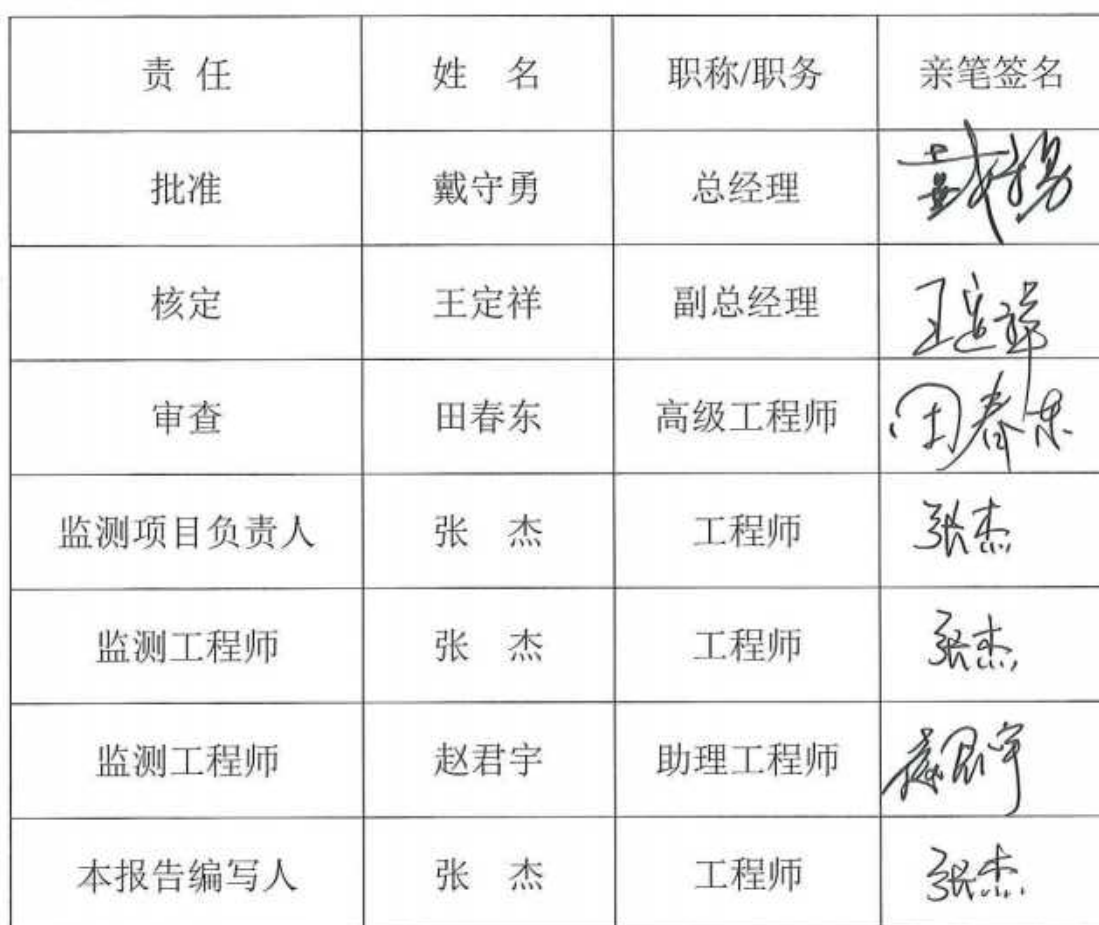 责 任 姓 名 职称/职务 亲笔签名
批准 戴守勇 总经理 戴守勇
核定 王定祥 副总经理 王定祥
审查 田春东 高级工程师 田春东
监测项目负责人 张 杰 工程师 张杰
监测工程师 张 杰 工程师 张杰
监测工程师 赵君宇 助理工程师 赵君宇
本报告编写人 张 杰 工程师 张杰